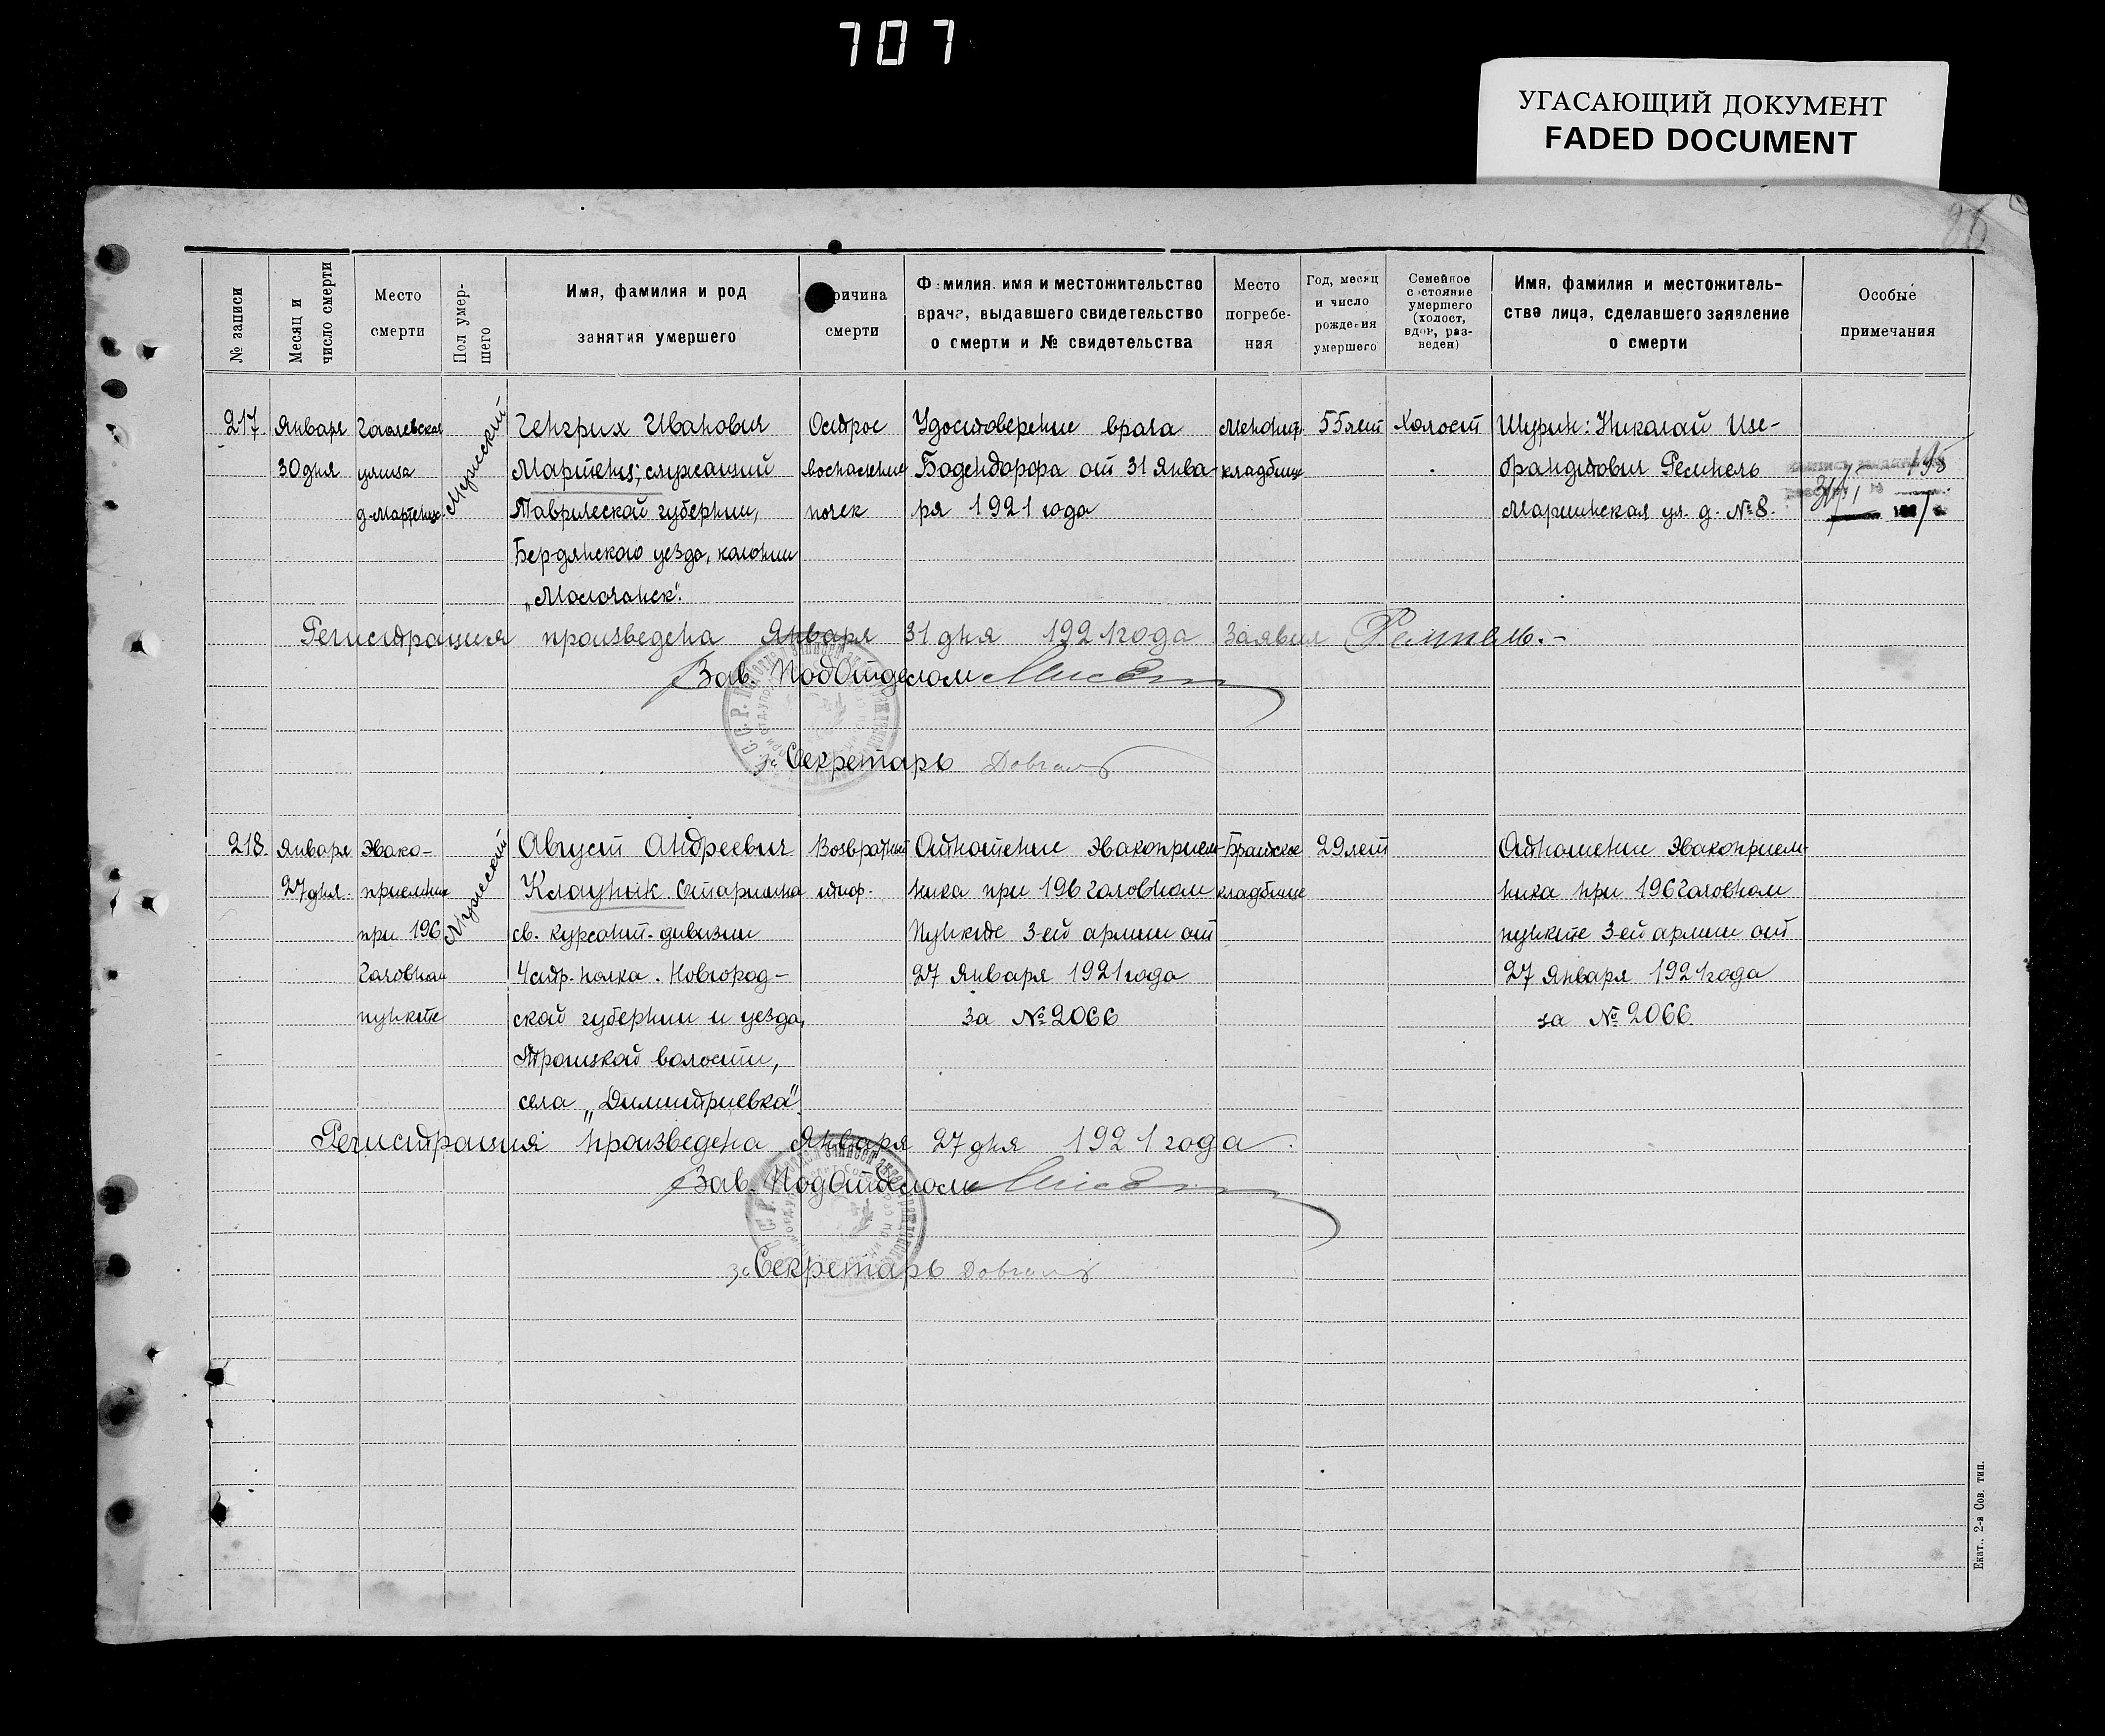 707
УГАСАЮЩИЙ ДОКУМЕНТ
FADED DOCUMENT
86
№ записи
Месяц и число смерти
Место смерти
Пол умер-шего
Имя, фамилия и род занятия умершего
ричина смерти
Ф милия имя и местожительство врача, выдавшего свидетельство о смерти и № свидетельства
Место погребе-ния
Год, месяц и число рождения умершего
Семейное состояние умершего (холост, вдов, раз-веден)
Имя, фамилия и местожитель-ство лица, сделавшего заявление о смерти
Особые примечания
217. Января Гоголевская Мужской Генрих Иванович Острое Удостоверение врача Менонит. 55 лет Холост Шурин: Николай Изе-
30 дня улица Мартенц; служащий воспаление Бодендорфа от 31 Янва- кладбище брандтович Ремпель 195
д. Мартенца. Таврической губернии, почек ря 1921 года Мариинская ул. д. № 8. 31/I
Бердянского уезда, колонии
„Молочанск".
Регистрация произведена Января 31 дня 1921 года Заявил Ремпель.-
Зав. ПодОтделом
за Секретарь
218. Января Эвако- Мужской Август Андреевич Возвратный Отношение Эвакоприем- Братское 29 лет Отношение Эвакоприем-
27 дня. приемник Клаупик. Старшина тиф. ника при 196 Головном кладбище ника при 196 Головном
при 196 св. курсант. дивизии Пункте 3-ей армии от пункте 3-ей армии от
Головном 4 стр. полка. Новгород- 27 Января 1921 года 27 Января 1921 года
пункте ской губернии и уезда, за № 2066 за № 2066.
Троицкой волости,
села „Димитриевка".
Регистрация произведена Января 27 дня 1921 года.
Зав. ПодОтделом
за Секретарь
Екат., 2-я Сов. тип.